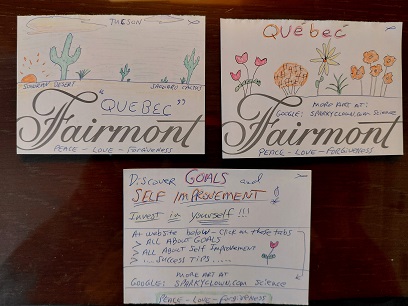 TUCSON
SONORAN DESERT
SAGUARO CACTUS
"QUEBEC"
Fairmont
PEACE - LOVE - FORGIVENESS
QUÉBEC
MORE ART AT:
GOOGLE: SPARKYCLOWN.com Science
Fairmont
PEACE - LOVE - FORGIVENESS
DISCOVER GOALS and
SELF IMPROVEMENT
Invest in yourself!!!
At website below - Click on these tabs
> ALL ABOUT GOALS
> ALL ABOUT Self Improvement
> ... SUCCESS TIPS .....
MORE ART AT
GOOGLE: SPARKYCLOWN.com Science
PEACE - LOVE - FORGIVENESS